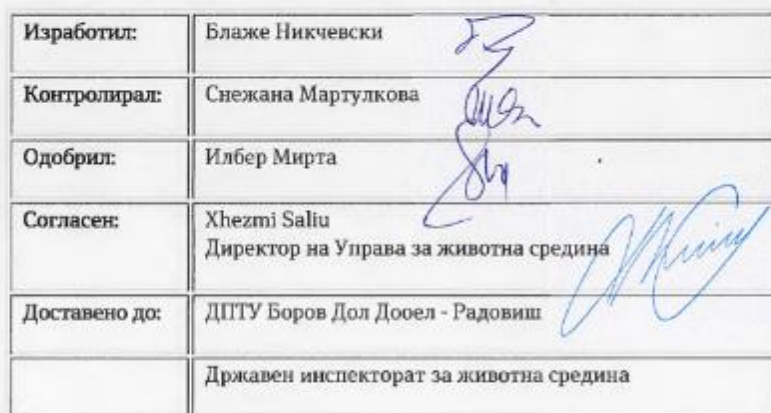 Изработил: Блаже Никчевски
Контролирал: Снежана Мартулкова
Одобрил: Илбер Мирта
Согласен: Xhezmi Saliu
Директор на Управа за животна средина
Доставено до: ДПТУ Боров Дол Дооел - Радовиш
Државен инспекторат за животна средина